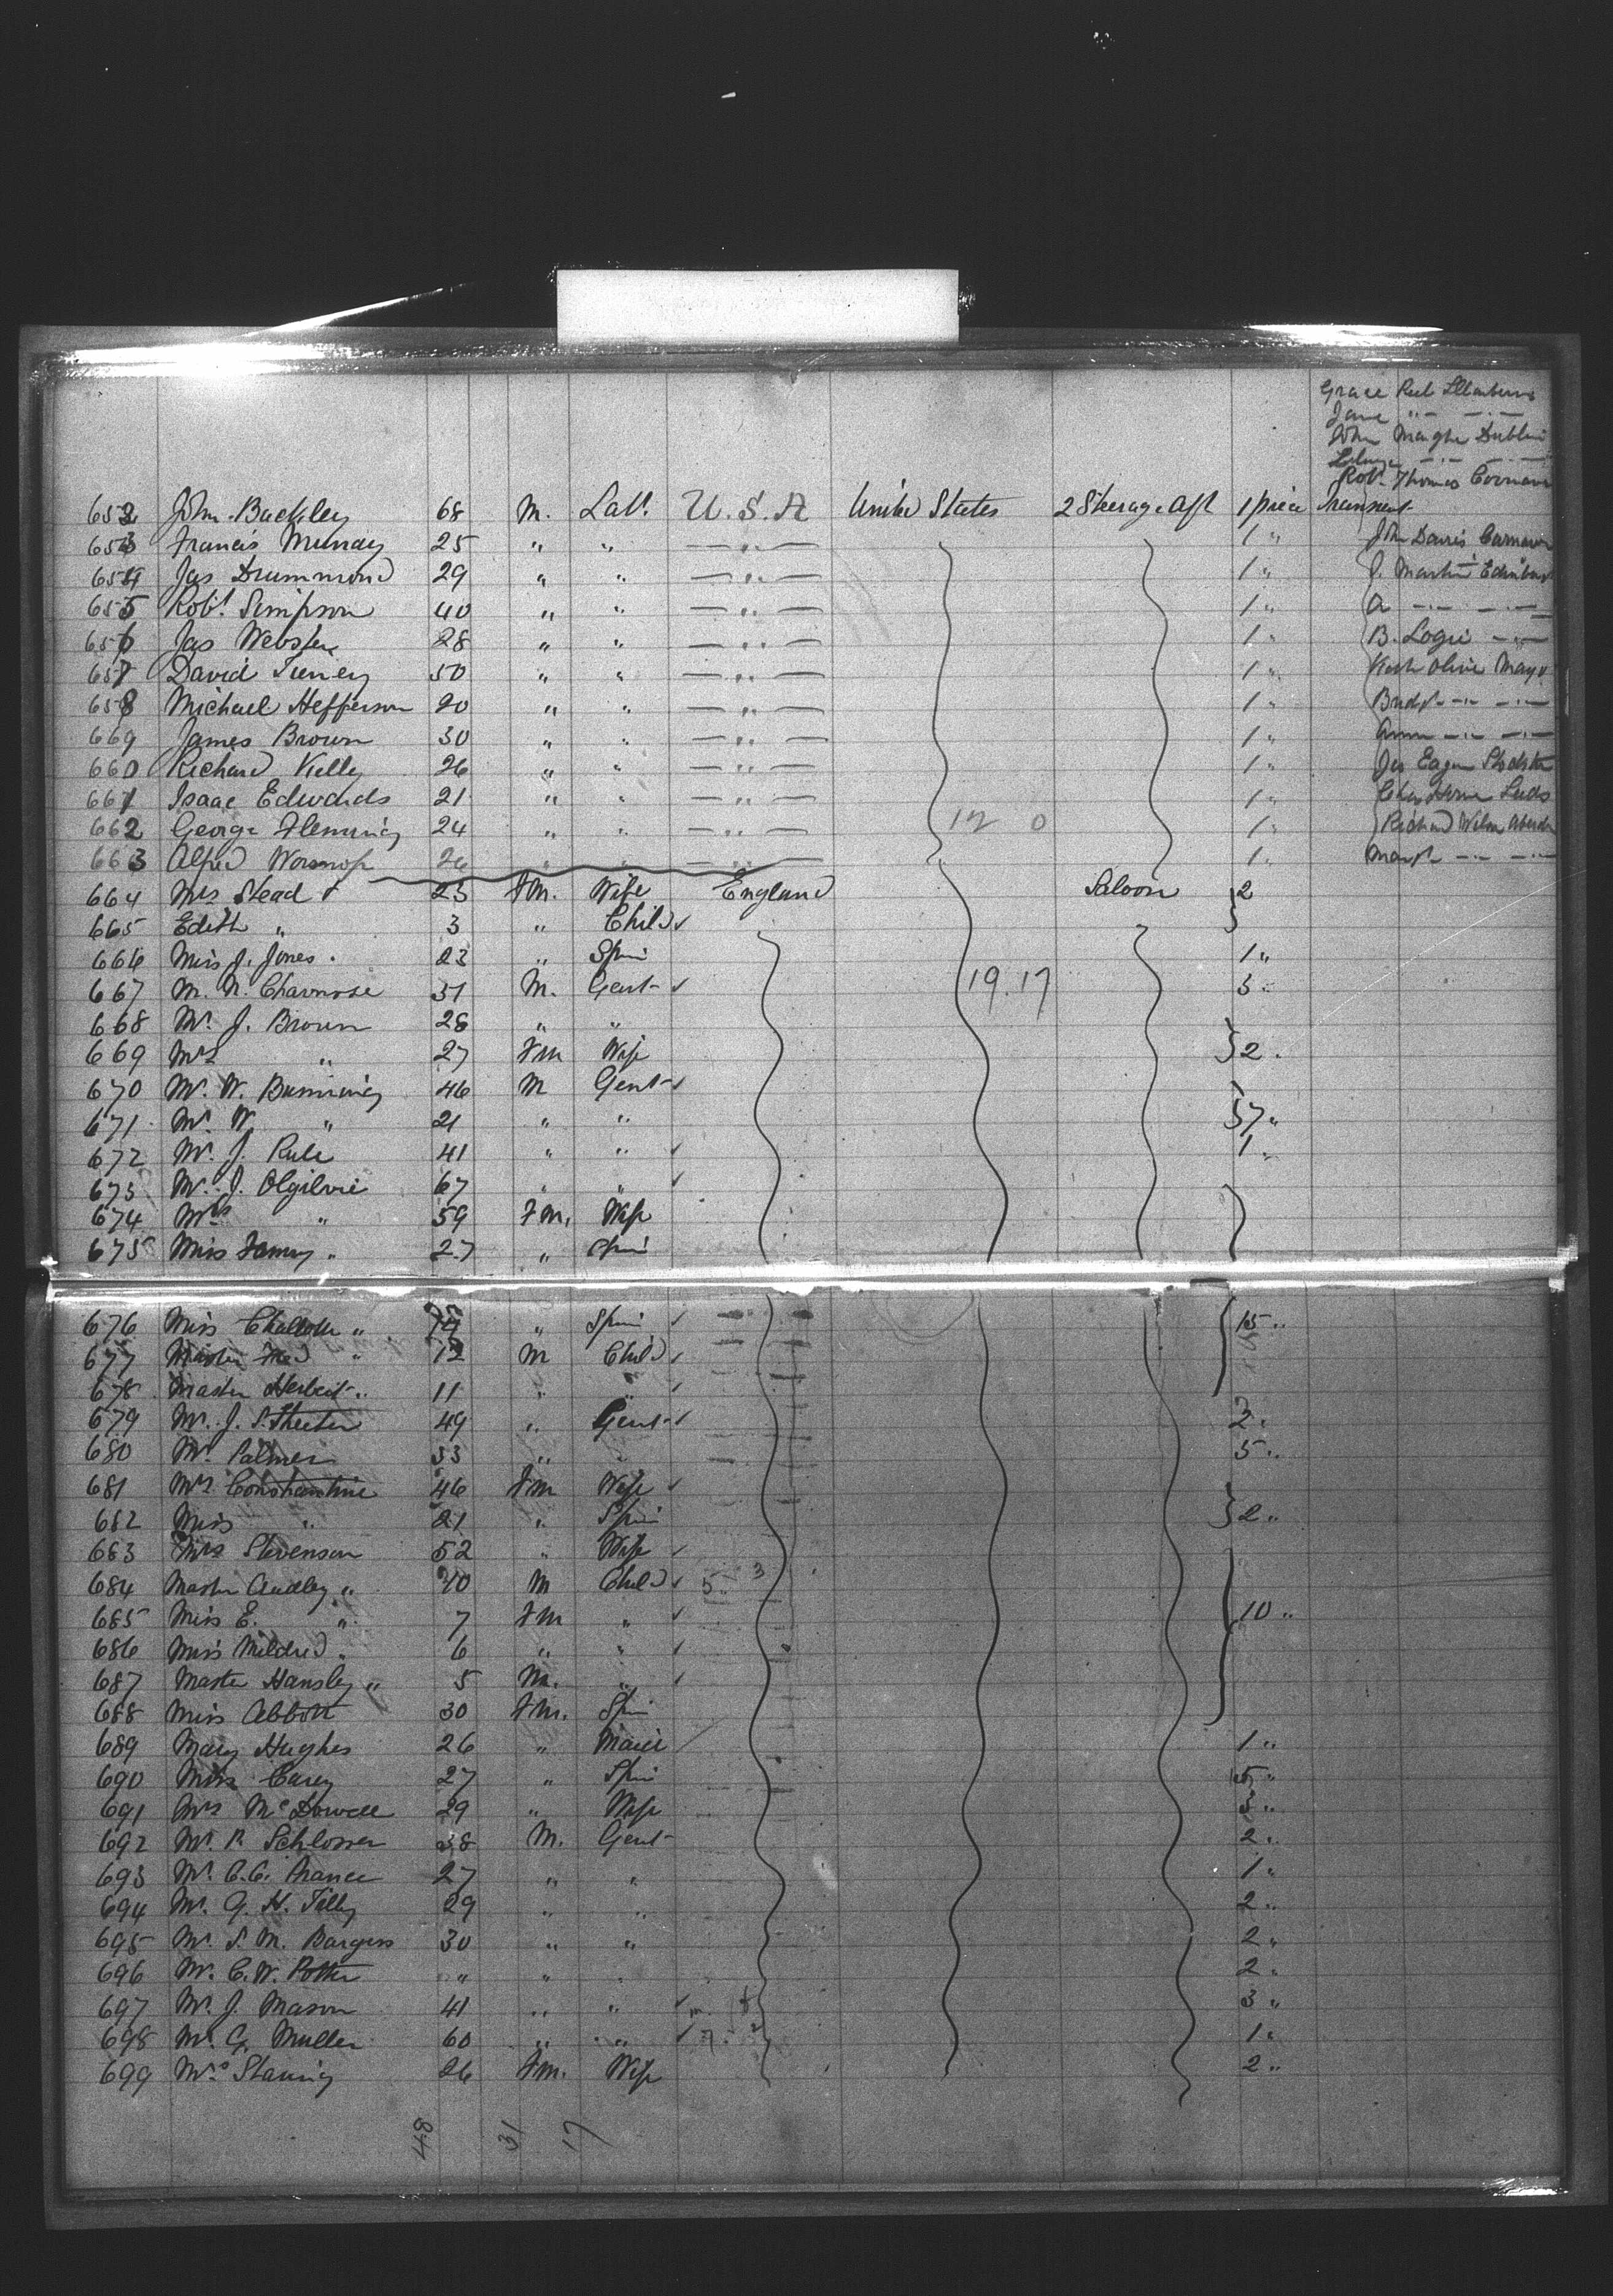 Grace
Jane " — " —
John Dublin
— " — — " —
Robt Thomas
652 John Buckley 68 M. Labr. U.S.A United States 2 Steerage Aft 1 piece Transient
653 Francis Murray 25 " " — " — 1 " John Davis
654 Jas Drummond 29 " " — " — 1 " J. Martin
655 Robt. Simpson 40 " " — " — 1 " A — " — — " —
656 Jas Webster 28 " " — " — 1 " B. Logie — " —
657 David 50 " " — " — 1 " Olive Mayo
658 Michael Hefferson 20 " " — " — 1 " Bridt — " — — " —
669 James Brown 30 " " — " — 1 " Ann — " — — " —
660 Richard Kelly 26 " " — " — 1 " Jas Eagan
661 Isaac Edwards 21 " " — " — 1 " Chas Horne Leeds
662 George Fleming 24 " " — " — 12 0 1 " Richard Wilson
663 Alfred Worsnop 26 " " — " — 1 " — " — — " —
664 Mrs Stead 23 Fm. Wife England Saloon 2
665 Edith " 3 " Child
666 Miss J. Jones 23 " Spin 1 "
667 M. N. 31 M. Gent 19.17 3 "
668 Mr. J. Brown 28 " "
669 Mrs " 27 Fm Wife 2 "
670 Mr. W. 46 M Gent
671 Mr. W. " 21 " " 7 "
672 Mr. J. Rule 41 " " 1 "
673 Mr. J. Olgilvie 67 " "
674 Mrs " 59 Fm. Wife
675 Miss Fanny " 27 " Spin
676 Miss Charlotte " " Spin 15 "
677 Master Fred " 12 M Child
678 Master Herbert " 11 " "
679 Mr. J. S. 49 " Gent 2 "
680 Mr. Palmer 33 " " 5 "
681 Mrs Constantine 46 Fm Wife
682 Miss " 21 " Spin 2 "
683 Mrs Stevenson 52 " Wife
684 Master Audley " 10 M Child 5 3
685 Miss E. " 7 Fm " 10 "
686 Miss Mildred " 6 " "
687 Master Hansley " 5 M. "
688 Miss Abbott 30 Fm. Spin
689 Mary Hughes 26 " 1 "
690 Miss Carey 27 " Spin 5 "
691 Mrs McDowell 29 " Wife 3 "
692 Mr. P. Schlosser 38 M. Gent 2 "
693 Mr. C.C. 27 " " 1 "
694 Mr. G. H. Tilly 29 " " 2 "
695 Mr. S. M. Burgess 30 " " 2 "
696 Mr. C. W. Potter " " " 2 "
697 Mr. J. Mason 41 " " 3 "
698 Mr. G. Muller 60 " " 1 "
699 Mrs Staning 26 Fm. Wife 2 "
48 31 17